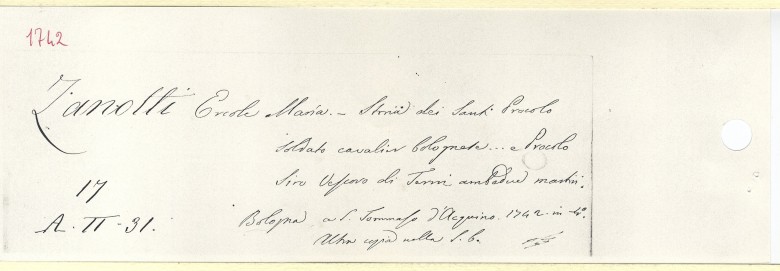 1742
Zanotti Ercole Maria. - Storia dei Santi Procolo
soldato cavalier bolognese... e Procolo
Siro Vescovo di Terni ambedue martiri.
17
A. II - 31.
Bologna a S. Tommaso d'Acquino. 1742. in-4°.
Altra copia nella S. b.